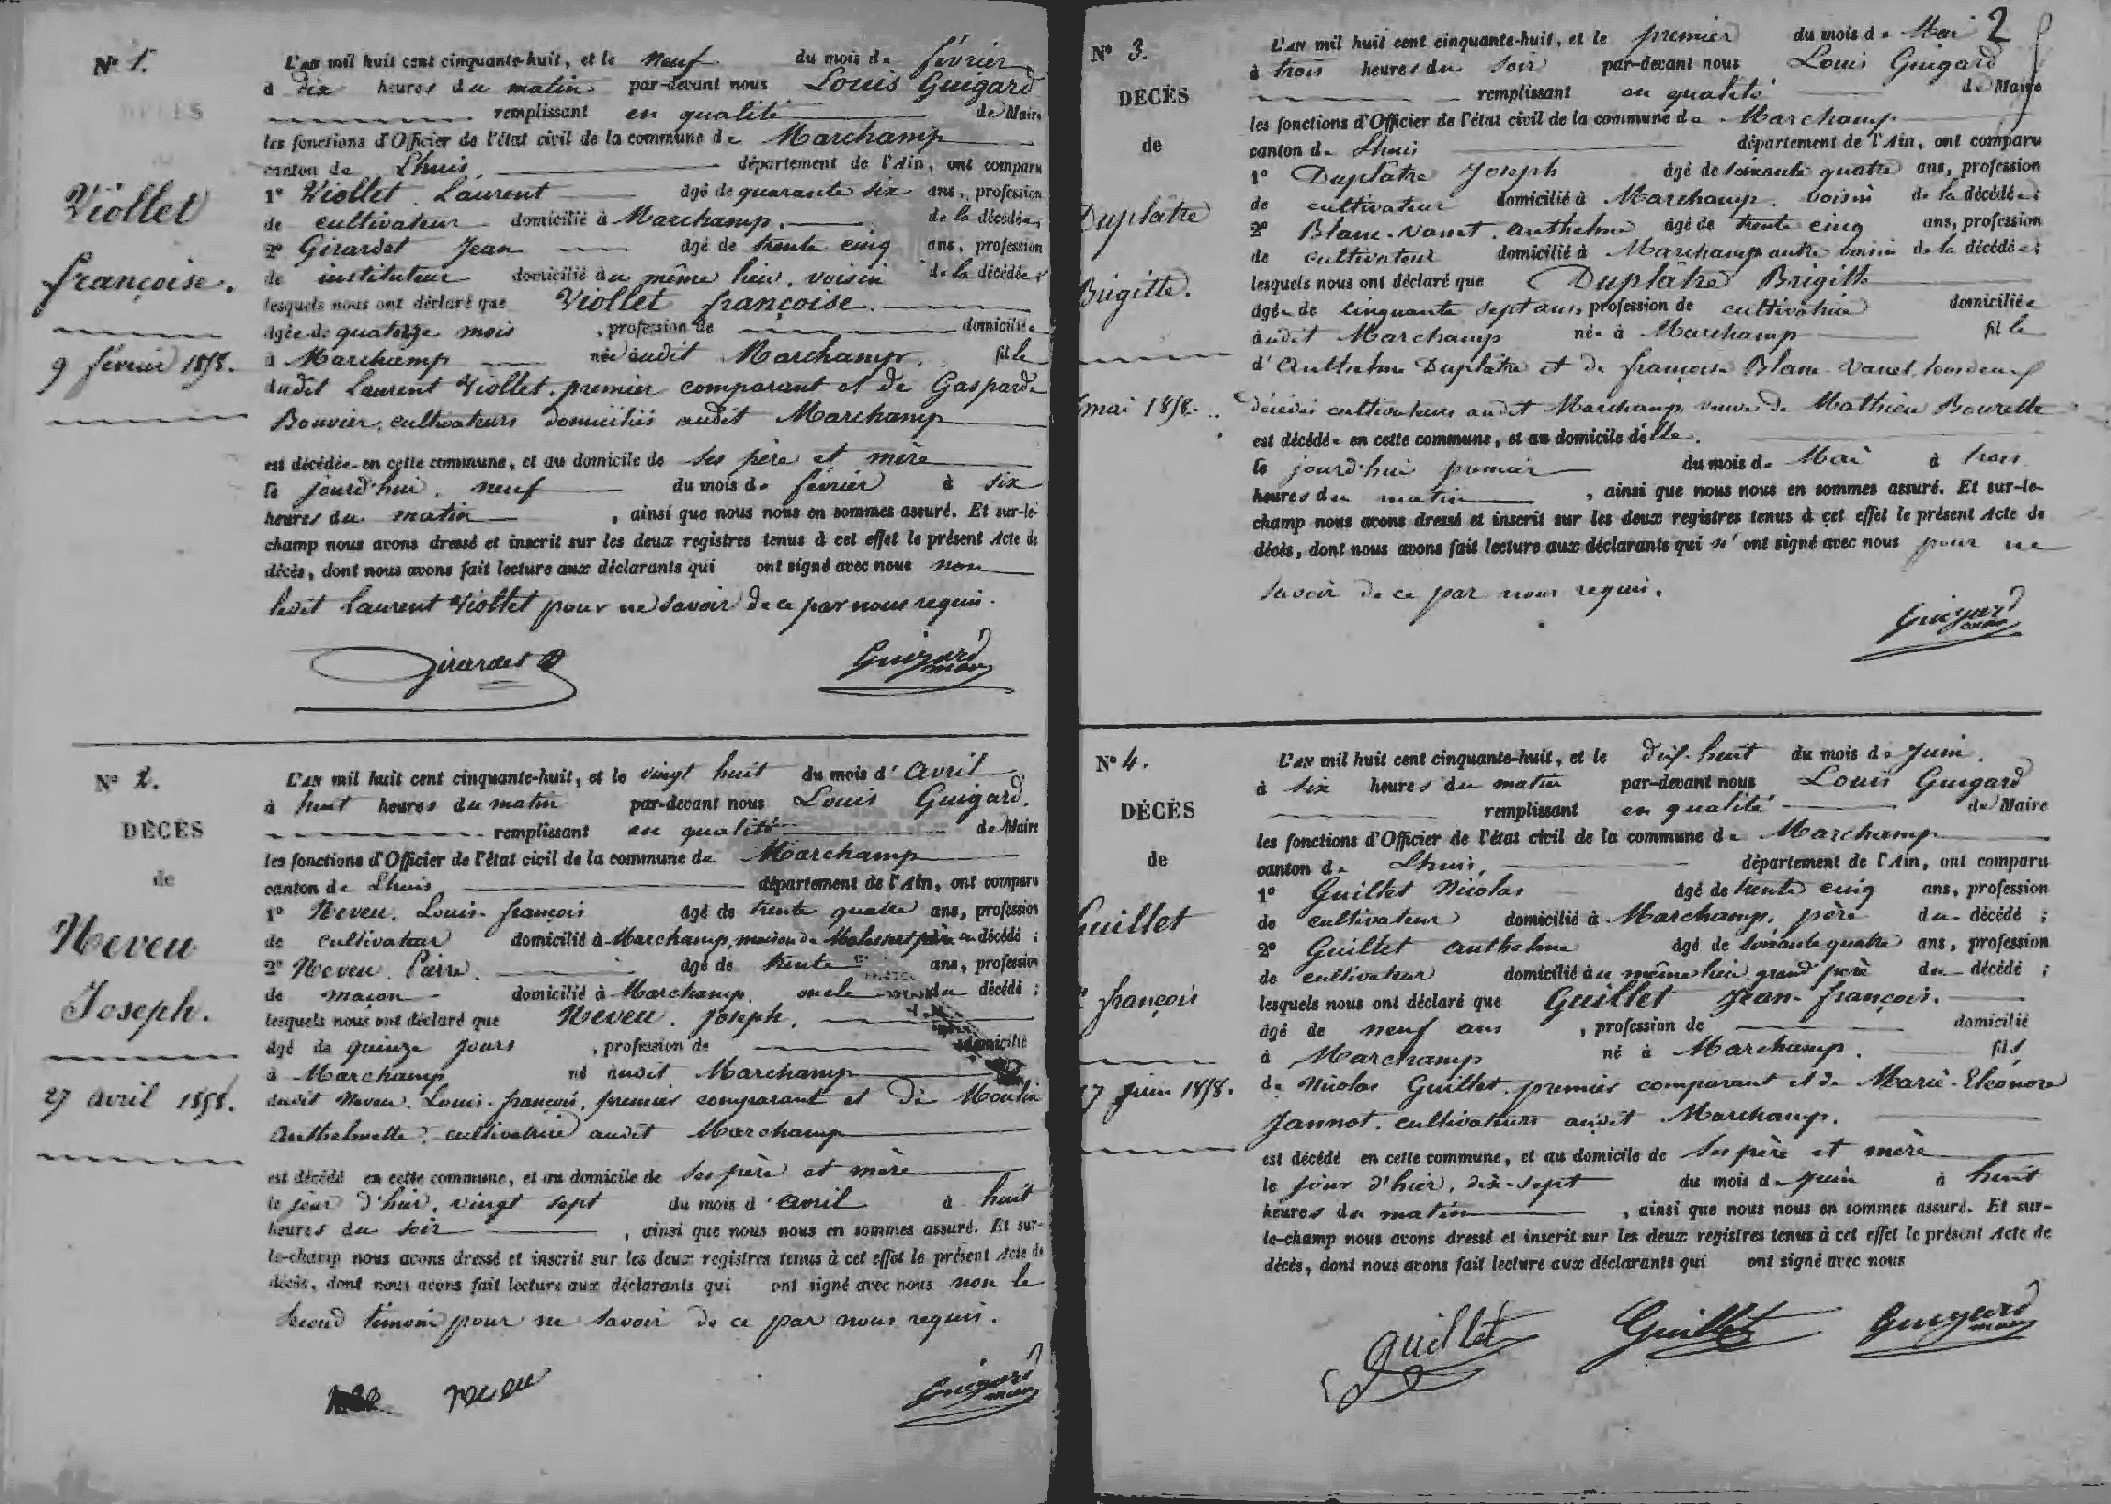 N° 1.
DÉCÈS
Viollet
françoise.
9 février 1858.
L'AN mil huit cent cinquante-huit, et le neuf du mois de février
à dix heures du matin par-devant nous Louis Guigard
remplissant en qualité de Maire
les fonctions d'Officier de l'état civil de la commune de Marchamp
canton de Lhuis, département de l'Ain, ont comparu
1° Viollet Laurent âgé de quarante six ans, profession
de cultivateur domicilié à Marchamp, de la décédée,
2° Girardet Jean âgé de trente cinq ans, profession
de instituteur domicilié au même lieu, voisin de la décédée,
lesquels nous ont déclaré que Viollet françoise.
âgée de quatorze mois, profession de domiciliée
à Marchamp née audit Marchamp. fille
dudit Laurent Viollet, premier comparant et de Gasparde
Bouvier, cultivateurs domiciliés audit Marchamp
est décédée en cette commune, et au domicile de ses père et mère
le jourd'hui, neuf du mois de février à six
heures du matin, ainsi que nous nous en sommes assuré. Et sur-le-
champ nous avons dressé et inscrit sur les deux registres tenus à cet effet le présent Acte de
décès, dont nous avons fait lecture aux déclarants qui ont signé avec nous non
ledit Laurent Viollet pour ne savoir de ce par nous requis.
Girardet Guigard maire
N° 2.
DÉCÈS
de
Neveu
Joseph.
27 avril 1858.
L'AN mil huit cent cinquante-huit, et le vingt huit du mois d'avril
à huit heures du matin par-devant nous Louis Guigard.
remplissant en qualité de Maire
les fonctions d'Officier de l'état civil de la commune de Marchamp
canton de Lhuis département de l'Ain, ont comparu
1° Neveu. Louis-françois âgé de trente quatre ans, profession
de cultivateur domicilié à Marchamp, père du décédé ;
2° Neveu. Pierre. âgé de trente ans, profession
de maçon domicilié à Marchamp, oncle du décédé ;
lesquels nous ont déclaré que Neveu. Joseph.
âgé de quinze jours, profession de domicilié
à Marchamp né audit Marchamp
dudit Neveu. Louis-françois, premier comparant et de Moulin
Anthelmette, cultivatrice audit Marchamp
est décédé en cette commune, et au domicile de ses père et mère
le jour d'hier, vingt sept du mois d'avril à huit
heures du soir, ainsi que nous nous en sommes assuré. Et sur-
le-champ nous avons dressé et inscrit sur les deux registres tenus à cet effet le présent Acte de
décès, dont nous avons fait lecture aux déclarants qui ont signé avec nous non le
second témoin pour ne savoir de ce par nous requis.
neveu Guigard maire
2
N° 3.
DÉCÈS
de
Duplâtre
Brigitte.
mai 1858.
L'AN mil huit cent cinquante-huit, et le premier du mois de Mai
à trois heures du soir par-devant nous Louis Guigard
remplissant en qualité de Maire
les fonctions d'Officier de l'état civil de la commune de Marchamp
canton de Lhuis département de l'Ain, ont comparu
1° Duplâtre Joseph âgé de soixante quatre ans, profession
de cultivateur domicilié à Marchamp. voisin de la décédée ;
2° Blanc-Vanet. anthelme âgé de trente cinq ans, profession
de cultivateur domicilié à Marchamp autre voisin de la décédée ;
lesquels nous ont déclaré que Duplâtre Brigitte
âgée de cinquante sept ans, profession de cultivatrice domiciliée
audit Marchamp née à Marchamp fille
d'Anthelme Duplâtre et de françoise Blanc-Vanet, tous deux
décédés cultivateurs audit Marchamp, veuve de Mathieu Bourelle
est décédée en cette commune, et au domicile d'elle.
le jourd'hui premier du mois de Mai à trois
heures du matin, ainsi que nous nous en sommes assuré. Et sur-le-
champ nous avons dressé et inscrit sur les deux registres tenus à cet effet le présent Acte de
décès, dont nous avons fait lecture aux déclarants qui n'ont signé avec nous pour ne
savoir de ce par nous requis.
Guigard maire
N° 4.
DÉCÈS
de
Guillet
françois
17 juin 1858.
L'AN mil huit cent cinquante-huit, et le dix-huit du mois de Juin.
à six heures du matin par-devant nous Louis Guigard
remplissant en qualité de Maire
les fonctions d'Officier de l'état civil de la commune de Marchamp
canton de Lhuis, département de l'Ain, ont comparu
1° Guillet Nicolas âgé de trente cinq ans, profession
de cultivateur domicilié à Marchamp, père du décédé ;
2° Guillet anthelme âgé de soixante quatre ans, profession
de cultivateur domicilié au même lieu grand père du décédé ;
lesquels nous ont déclaré que Guillet Jean-françois.
âgé de neuf ans, profession de domicilié
à Marchamp né à Marchamp. fils
de Nicolas Guillet, premier comparant et de Marie-Eléonore
Jannot. cultivateurs audit Marchamp.
est décédé en cette commune, et au domicile de ses père et mère
le jour d'hier, dix-sept du mois de juin à huit
heures du matin, ainsi que nous nous en sommes assuré. Et sur-
le-champ nous avons dressé et inscrit sur les deux registres tenus à cet effet le présent Acte de
décès, dont nous avons fait lecture aux déclarants qui ont signé avec nous
Guillet Guillet Guigard maire